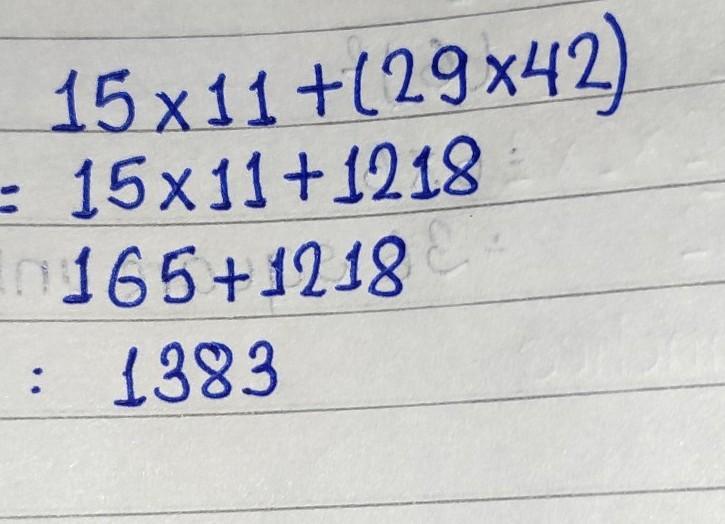 15×11+(29×42)
= 15×11+1218
165+1218
: 1383